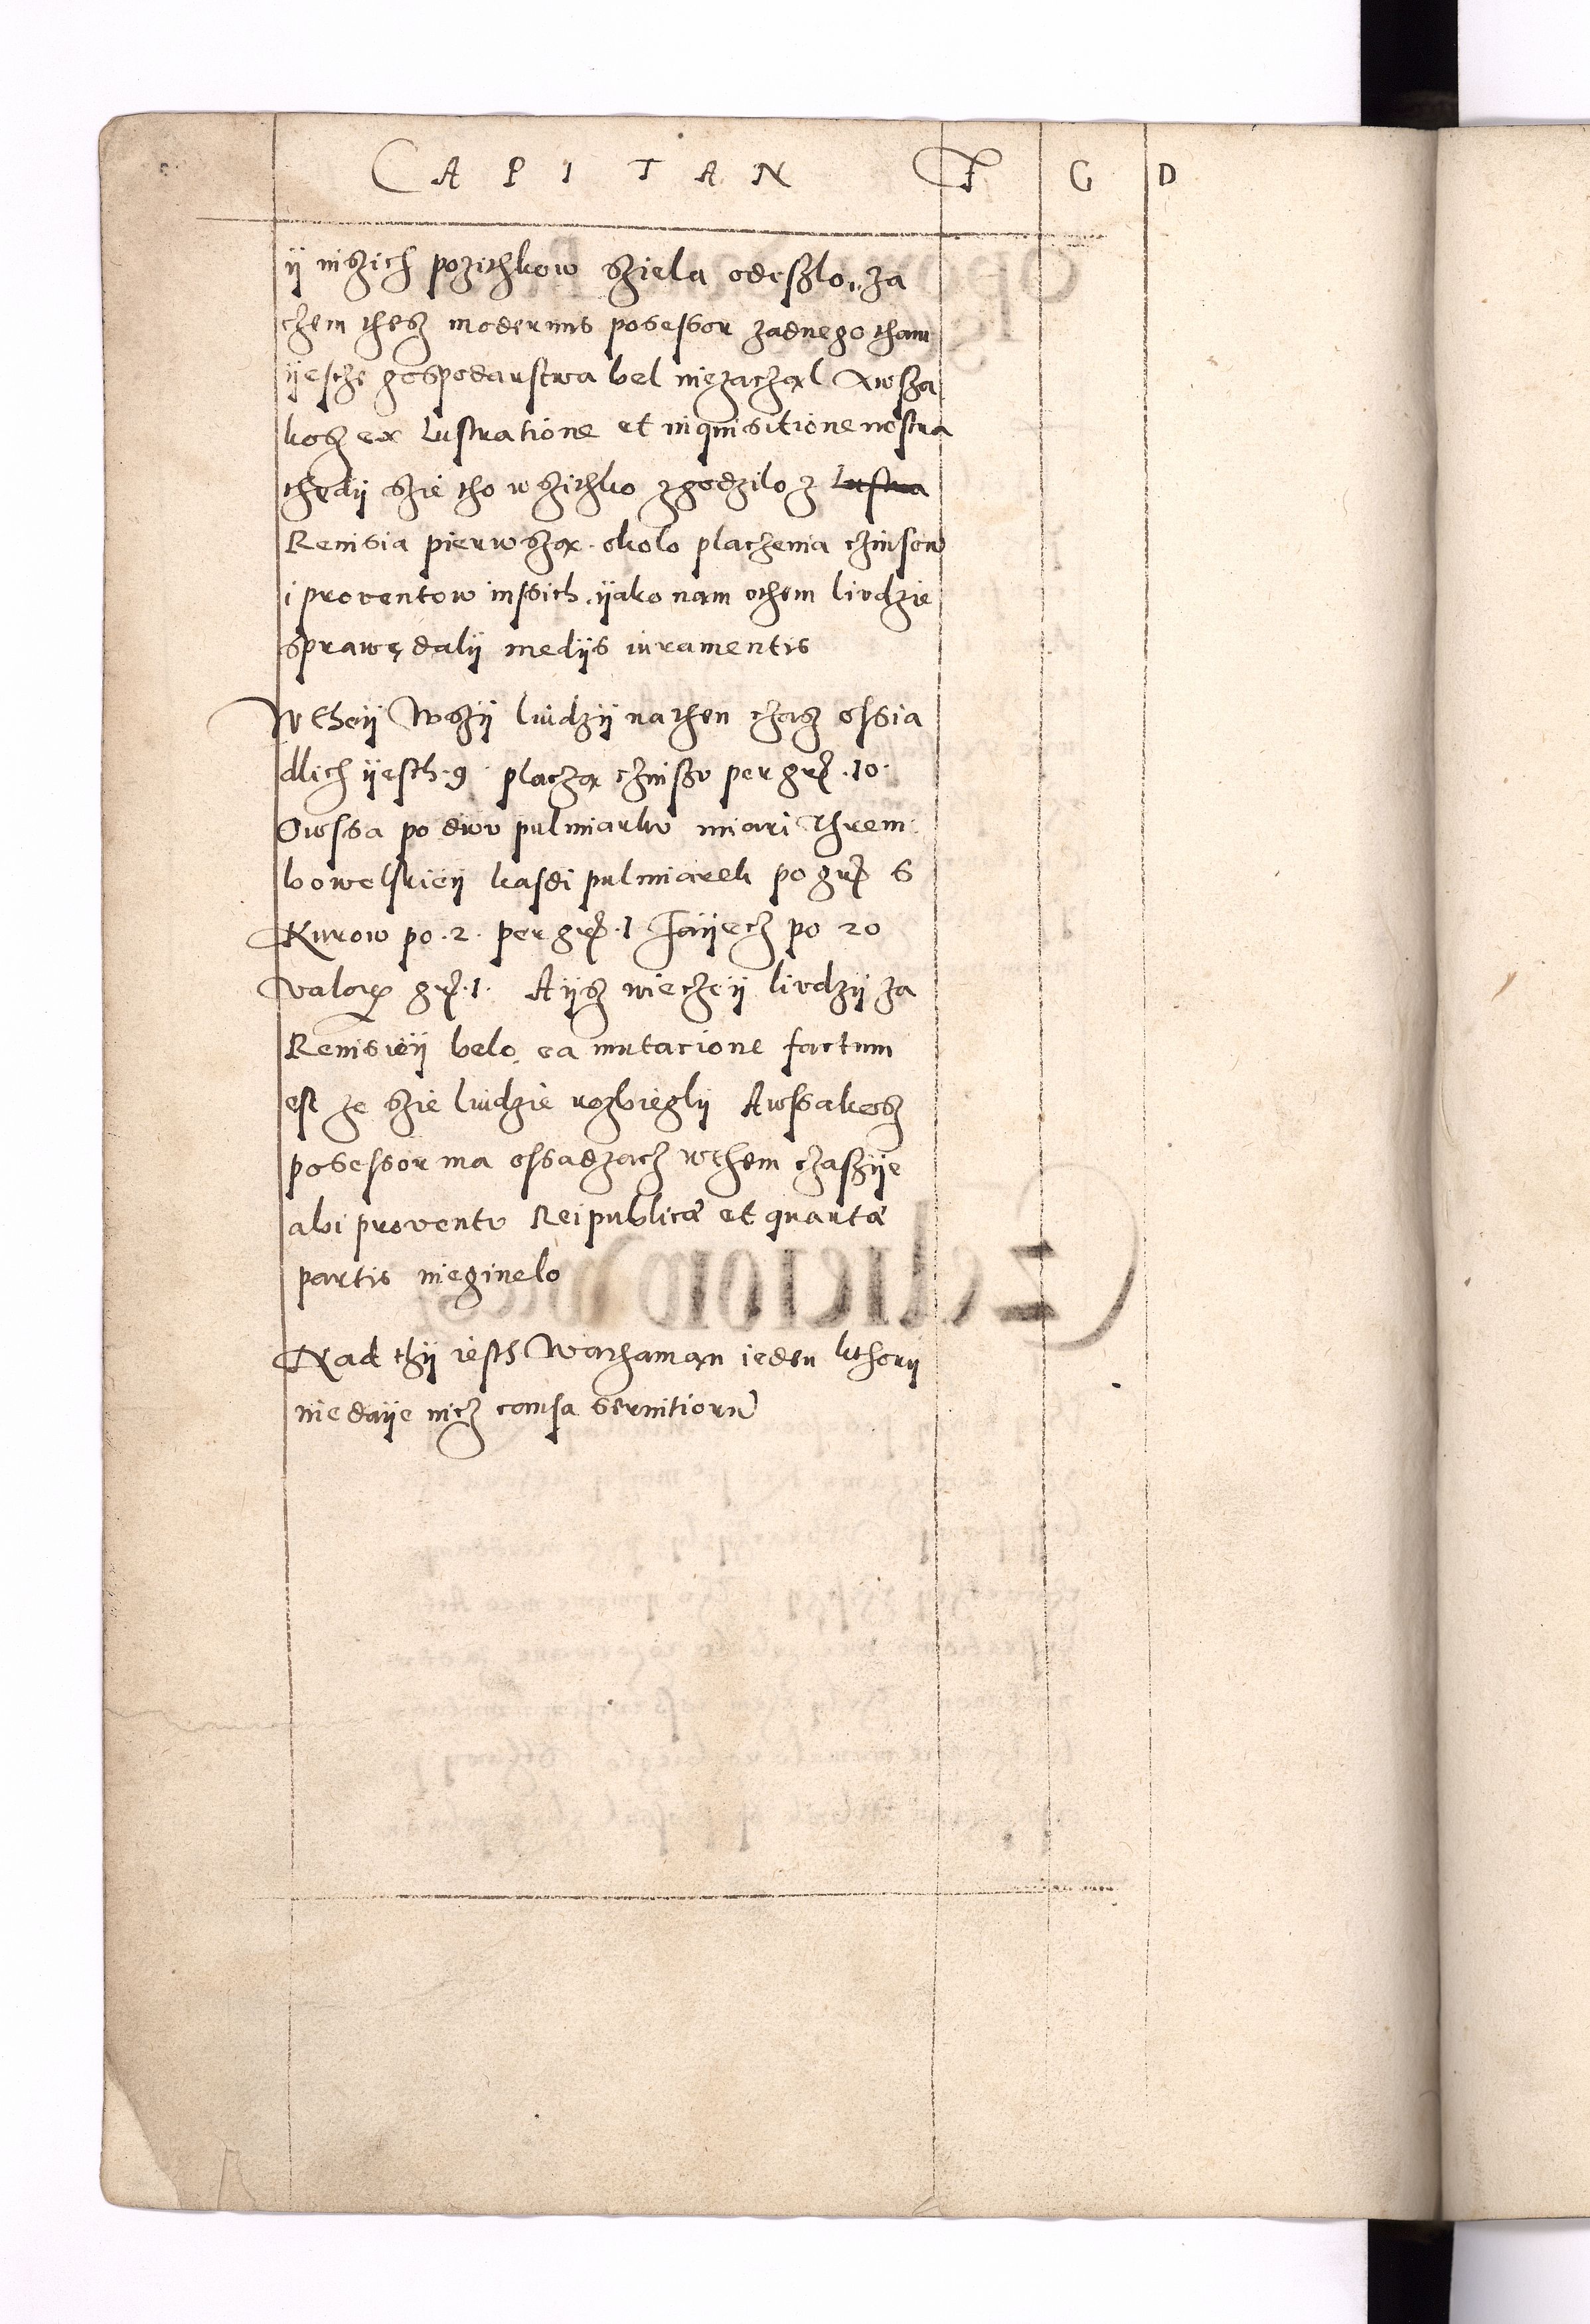 CAPITAN F G D
ÿ inszich pozithkow sziela odeszlo, za
czem thesz modernus posessor zadnego tham
ÿescze gospodarstwa bel niezaczal Awsza
kosz ex lustratione et inquisitione nostra
thedÿ szie tho wszithko zgodzilo z lustra
Revisia pierwsza okolo placzenia czinsow
i proventow inssich ÿako nam othem liudzie
sprawę dalÿ medÿs iuramentis
W theÿ Wszÿ liudzÿ na then czasz ossia
dlich ÿesth 9 placza czinszu per gr. 10.
Owssa po dwu pulmiarku miari Threm
bowelskieÿ kasdi pulmiarek po gr 6
Kurow po 2. per gr. 1 Jaÿecz po 20
valor. gr. 1. Aÿsz wieczeÿ liudzÿ za
Revisieÿ belo, ea mutacione factum
est ze szie liudzie rozbieglÿ Awssakosz
posessor ma ossadzacz wthem czaszÿe
abi proventu Reipublicæ et quartæ
partis nieginelo
Nad thÿ iesth Wathaman ieden kthorÿ
niedaÿe nicz causa servitioru